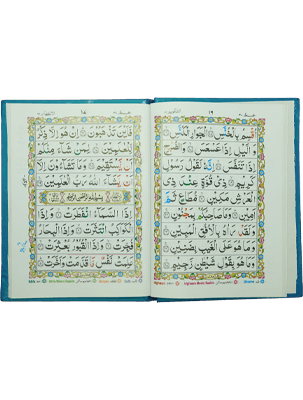 اُقْسِمُ بِالْخُنَّسِ الْجَوَارِ الْكُنَّسِ
وَ الَّيْلِ اِذَا عَسْعَسَ وَالصُّبْحِ
اِذَا تَنَفَّسَ اِنَّهٗ لَقَوْلُ رَسُوْلٍ
كَرِيْمٍ ذِيْ قُوَّةٍ عِنْدَ ذِي
الْعَرْشِ مَكِيْنٍ مُّطَاعٍ ثَمَّ
اَمِيْنٍ وَمَا صَاحِبُكُمْ بِمَجْنُوْنٍ
وَلَقَدْ رَاٰهُ بِالْاُفُقِ الْمُبِيْنِ
وَمَا هُوَ عَلَى الْغَيْبِ بِضَنِيْنٍ
وَمَا هُوَ بِقَوْلِ شَيْطٰنٍ رَّجِيْمٍ
فَاَيْنَ تَذْهَبُوْنَ اِنْ هُوَ اِلَّا ذِكْرٌ
لِّلْعٰلَمِيْنَ لِمَنْ شَآءَ مِنْكُمْ
اَنْ يَّسْتَقِيْمَ وَمَا تَشَآءُوْنَ اِلَّآ
اَنْ يَّشَآءَ اللّٰهُ رَبُّ الْعٰلَمِيْنَ
بِسْمِ اللّٰهِ الرَّحْمٰنِ الرَّحِيْمِ
اِذَا السَّمَآءُ انْفَطَرَتْ وَاِذَا
الْكَوَاكِبُ انْتَثَرَتْ وَاِذَا الْبِحَارُ
فُجِّرَتْ وَاِذَا الْقُبُوْرُ بُعْثِرَتْ
عَلِمَتْ نَفْسٌ مَّا قَدَّمَتْ وَاَخَّرَتْ